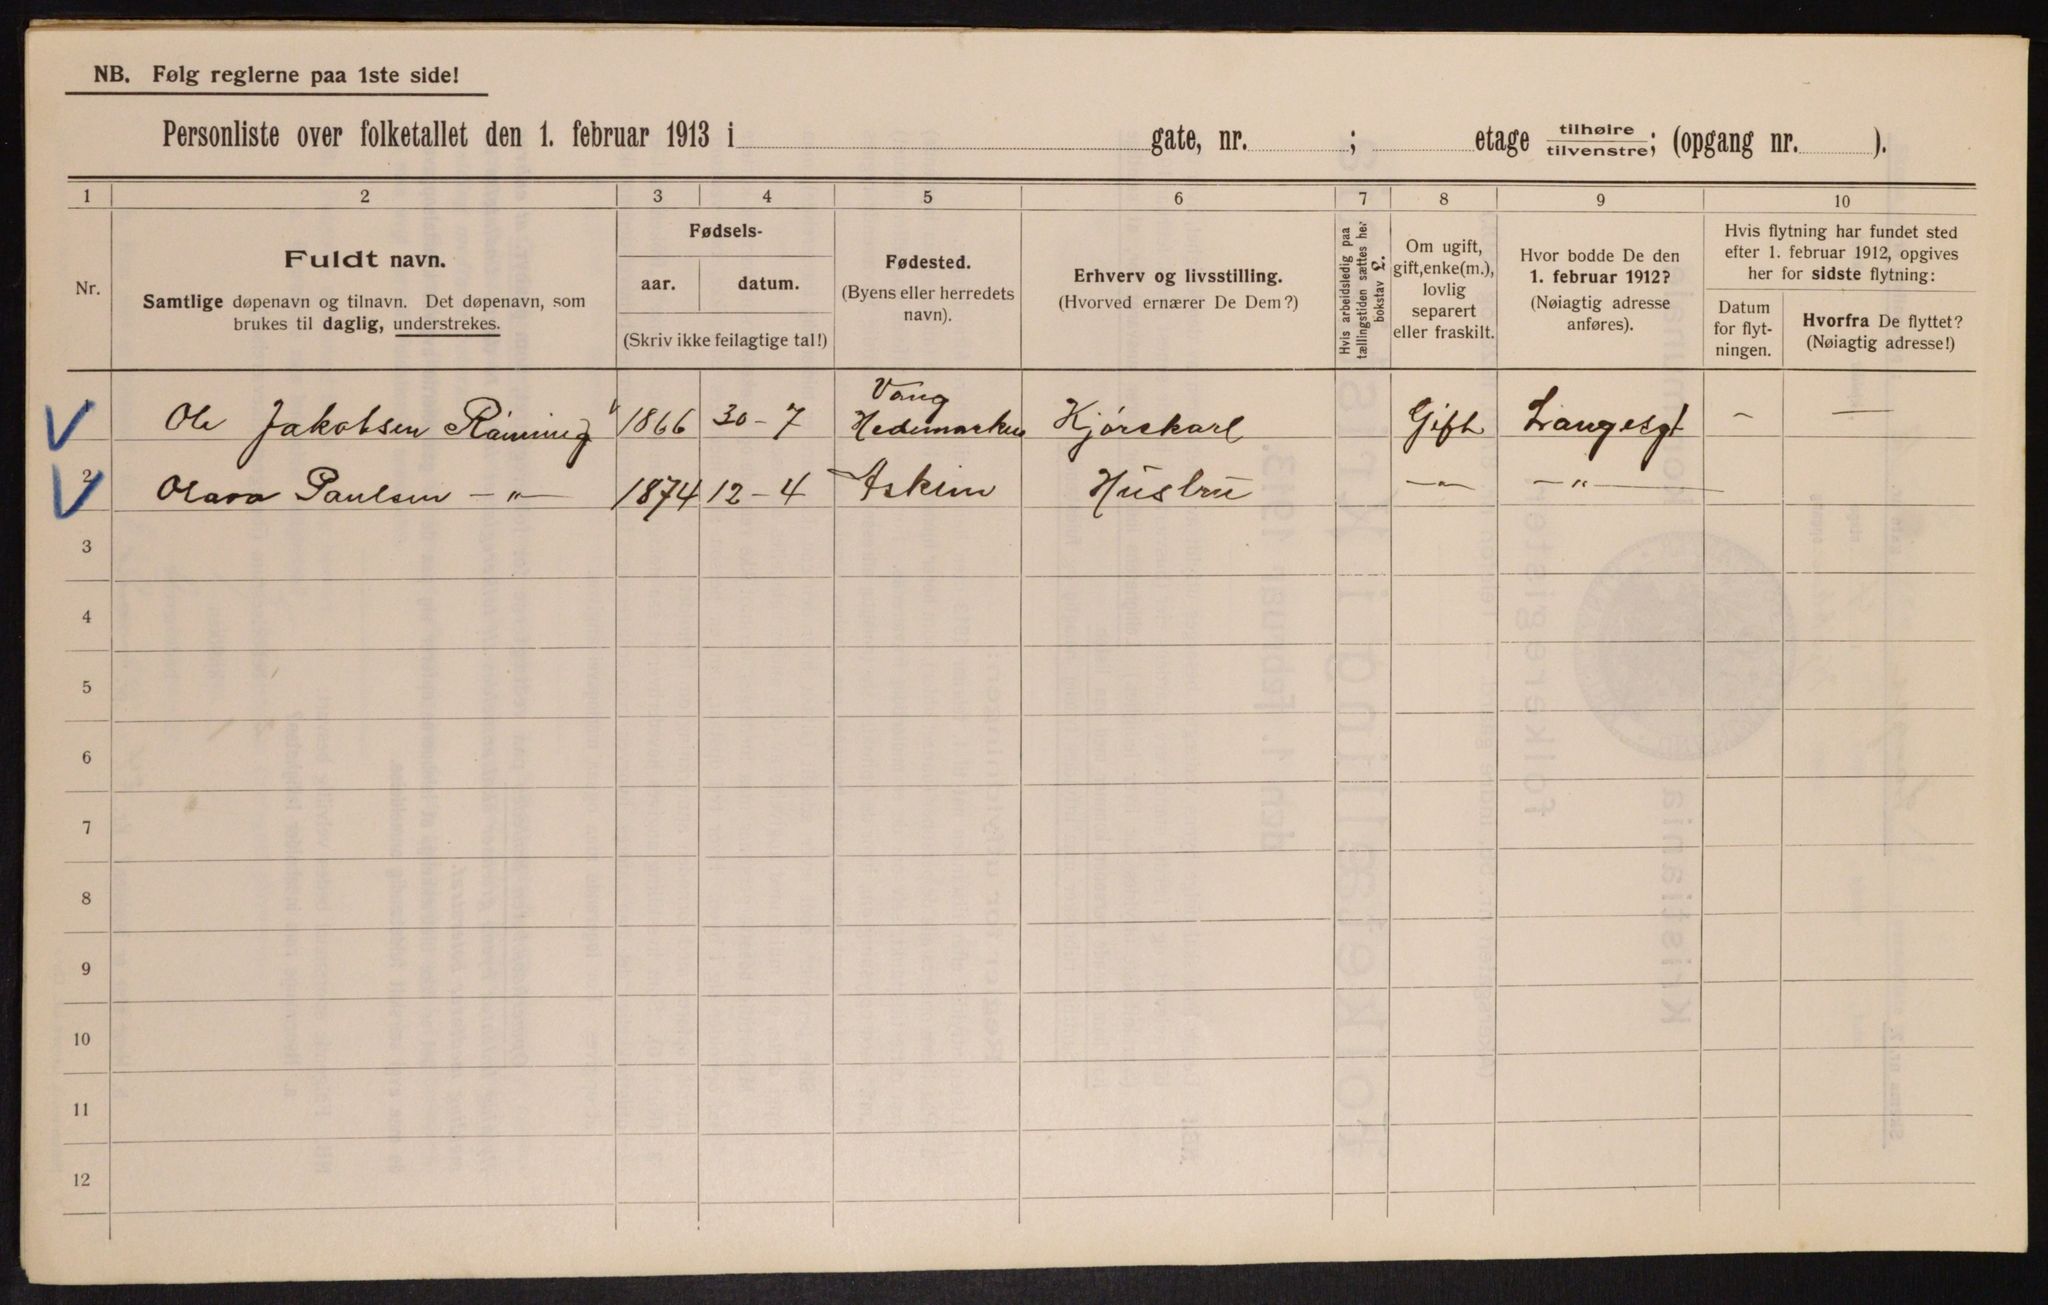 NB. Følg reglerne paa 1ste side!
Personliste over folketallet den 1. februar 1913 i gate, nr. ; etage tilhøire/tilvenstre; (opgang nr. ).
1 2 3 4 5 6 7 8 9 10
Nr.
Fuldt navn.
Samtlige døpenavn og tilnavn. Det døpenavn, som
brukes til daglig, understrekes.
Fødsels-
aar. datum.
(Skriv ikke feilagtige tal!)
Fødested.
(Byens eller herredets
navn).
Erhverv og livsstilling.
(Hvorved ernærer De Dem?)
Hvis arbeidsledig paa
tællingstiden sættes her
bokstav L.
Om ugift,
gift, enke(m.),
lovlig
separert
eller fraskilt.
Hvor bodde De den
1. februar 1912?
(Nøiagtig adresse
anføres).
Hvis flytning har fundet sted
efter 1. februar 1912, opgives
her for sidste flytning:
Datum
for flyt-
ningen.
Hvorfra De flyttet?
(Nøiagtig adresse!)
Ole Jakobsen 1866 30-7 Vang Hedemarken Kjørekarl Gift Langesgt - —
2 Olava Paulsen -"- 1874 12-4 Askim Hustru -"- -"-
3
4
5
6
7
8
9
10
11
12